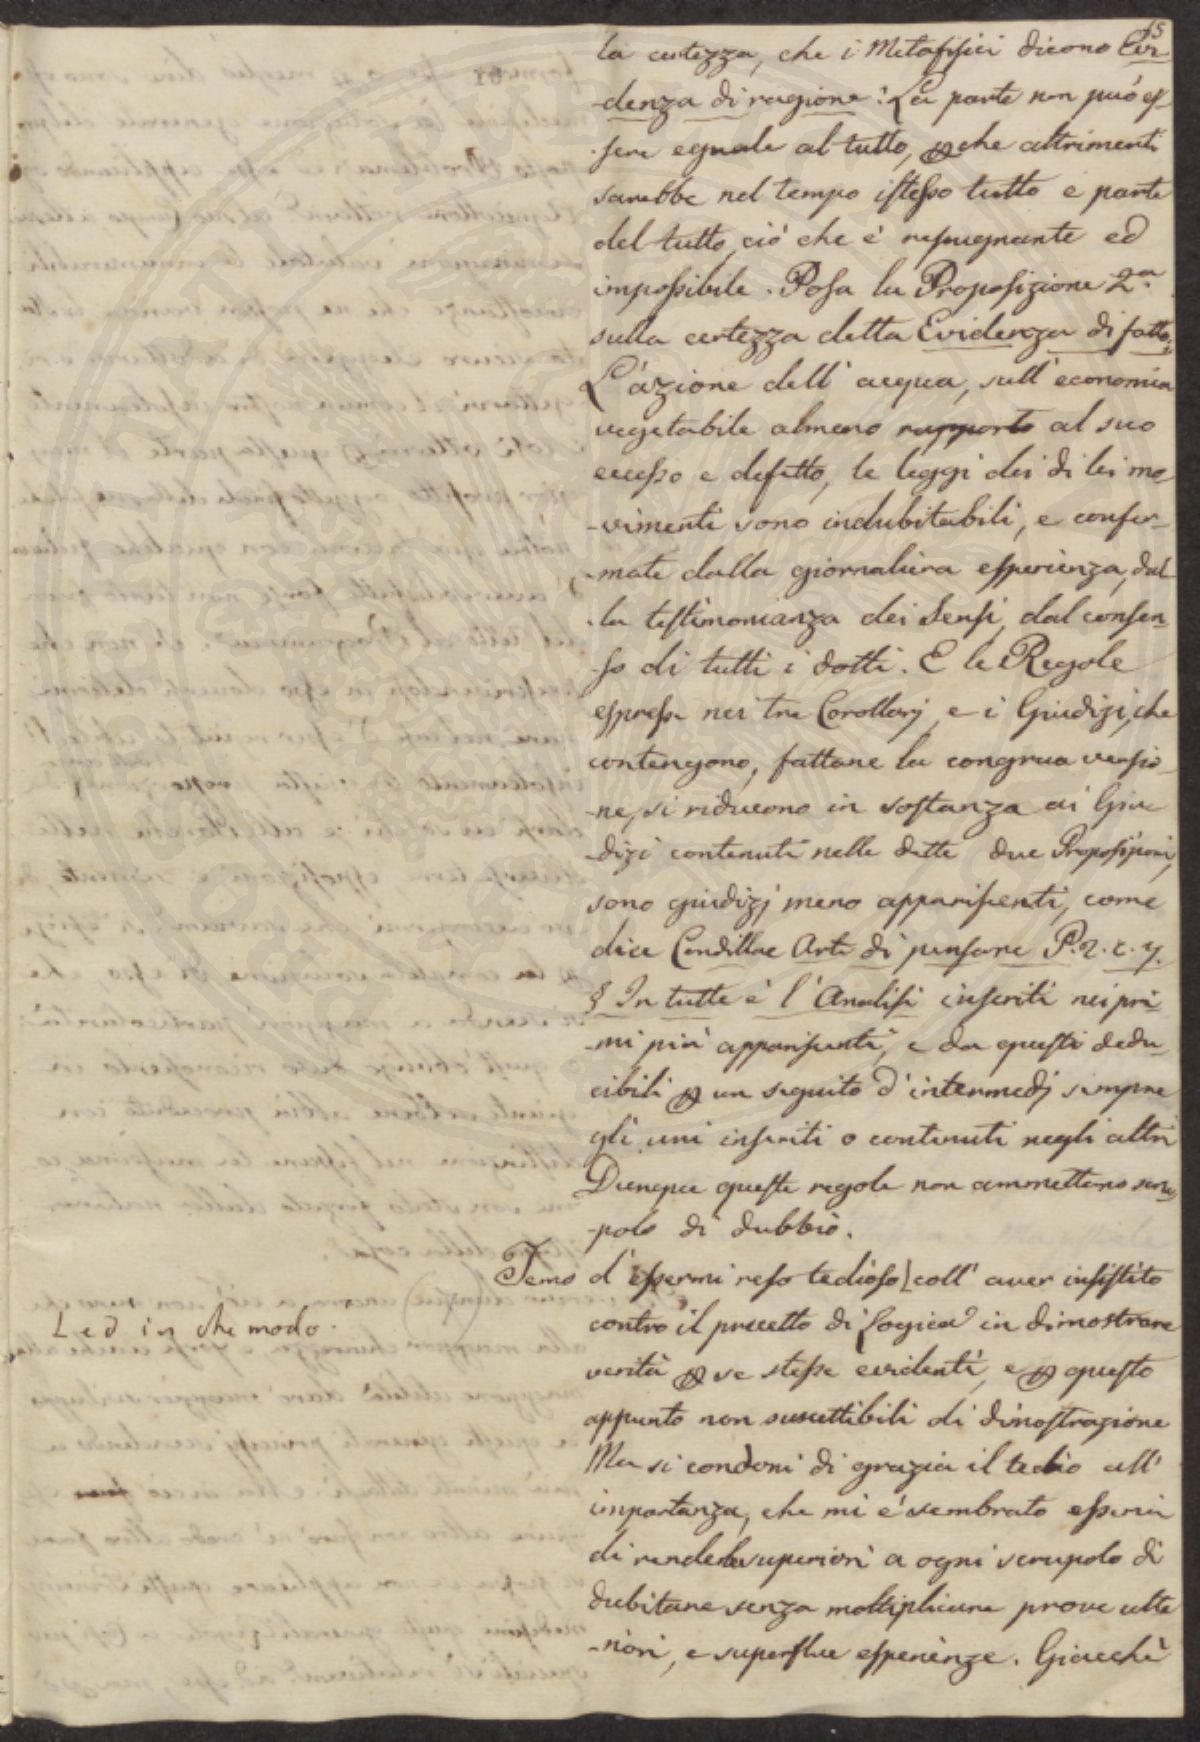 15
la certezza, che i Metafisici dicono Evi-
-denza di ragione: La parte non può es-
-sere eguale al tutto, perche altrimenti
sarebbe nel tempo istesso tutto e parte
del tutto, ciò che è repugnante ed
impossibile. Posa la Proposizione 2.a
sulla certezza detta Evidenza di fatto:
L'azione dell' acqua, sull' economia
vegetabile almeno rapporto al suo
eccesso e difetto, le leggi dei di lei mo-
-vimenti sono indubitabili, e confer-
-mate dalla giornaliera esperienza, dal-
-la testimonianza dei Sensi, dal consen-
-so di tutti i dotti. E le Regole
espresse nei tre Corollarj, e i Giudizi, che
contengono, fattane la congrua versio-
-ne, si riducono in sostanza ai Giu-
-dizi contenuti nelle dette due Proposizioni,
sono giudizj meno appariscenti, come
dice Condillac Arte di pensare P. 2. c. 7.
§ In tutte è l'Analisi inseriti nei pri-
-mi più appariscenti, e da questi dedu-
cibili per un seguito d'intermedj sempre
gli uni inseriti o contenuti negli altri
Dunque queste regole non ammettono scru-
-polo di dubbio.
Temo d'essermi reso tedioso [coll' aver insistito
L ed in che modo.
contro il precetto di Logica in dimostrare
verità per se stesse evidenti, e per questo
appunto non suscettibili di dimostrazione
Ma si condoni di grazia il tedio all'
importanza, che mi è sembrato esservi
di renderle superiori a ogni scrupolo di
dubitare senza moltiplicare prove ulte
-riori, e superflue esperienze. Giacchè